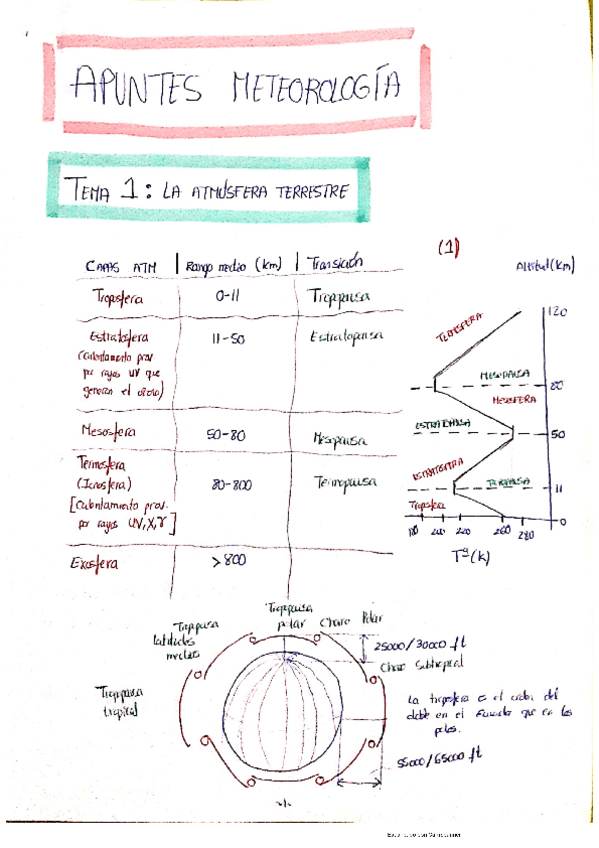 APUNTES METEOROLOGÍA
TEMA 1: LA ATMÓSFERA TERRESTRE
(1)
CAPAS ATM | Rango medio (km) | Transición
Troposfera 0-11 Tropopausa
Estratosfera 11-50 Estratopausa
(Calentamiento prov.
por rayos UV que
generan el ozono)
Mesosfera 50-80 Mesopausa
Termosfera 80-800 Termopausa
(Ionosfera)
[Calentamiento prov.
por rayos UV, X, γ]
Exosfera >800
Altitud (km)
120
TERMOSFERA
MESOPAUSA
80
MESOSFERA
ESTRATOPAUSA
50
ESTRATOSFERA
11
Troposfera
0
180 220 260 280
Tª (K)
Tropopausa
polar
Chorro Polar
Tropopausa
latitudes
medias
25000/30000 ft
Chorro Subtropical
Tropopausa
tropical
La troposfera es el
doble en el Ecuador que en los
polos.
55000/65000 ft